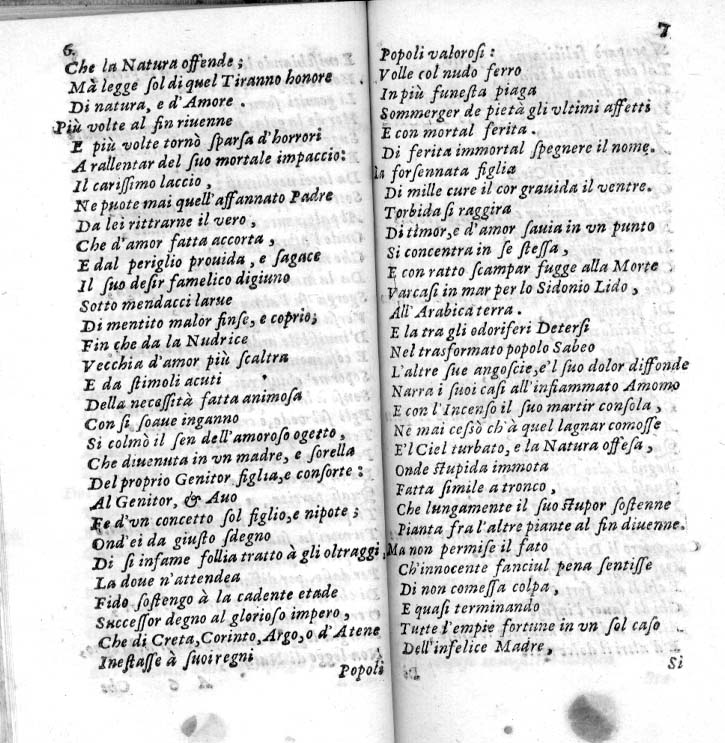 6.
Che la Natura offende;
Mà legge ſol di quel Tiranno honore
Di natura, e d'Amore.
Più volte al fin riuenne
E più volte tornò ſparſa d'horrori
A rallentar del ſuo mortale impaccio:
Il cariſſimo laccio,
Ne puote mai quell'affannato Padre
Da lei rittrarne il vero,
Che d'amor fatta accorta,
E dal periglio prouida, e ſagace
Il ſuo deſir famelico digiuno
Sotto mendacci larue
Di mentito malor finſe, e coprio;
Fin che da la Nudrice
Vecchia d'amor più ſcaltra
E da ſtimoli acuti
Della neceſſità fatta animoſa
Con ſi, ſoaue inganno
Si colmò il ſen dell'amoroſo ogetto,
Che diuenuta in vn madre, e ſorella
Del proprio Genitor figlia, e conſorte:
Al Genitor, & Auo
Fe d'vn concetto ſol figlio, e nipote;
Ond'ei da giuſto ſdegno
Di ſi infame follia tratto à gli oltraggi,
La doue n'attendea
Fido ſoſtengo à la cadente etade
Succeſſor degno al glorioſo impero,
Che di Creta, Corinto, Argo, o d'Atene
Ineſtaſſe à ſuoi regni
Popoli
7
Popoli valoroſi:
Volle col nudo ferro
In più funeſta piaga
Sommerger de pietà gli vltimi affetti
E con mortal ferita.
Di ferita immortal ſpegnere il nome.
la forſennata figlia
Di mille cure il cor grauida il ventre.
Torbida ſi raggira
Di timor, e d'amor ſauia in vn punto
Si concentra in ſe ſteſſa,
E con ratto ſcampar fugge alla Morte
Varcaſi in mar per lo Sidonio Lido,
All'Arabica terra.
E la tra gli odoriferi Deterſi
Nel trasformato popolo Sabeo
L'altre ſue angoſcie, e'l ſuo dolor diffonde
Narra i ſuoi caſi all'infiammato Amomo
E con l'Incenſo il ſuo martir conſola,
Ne mai ceſſò ch'à quel lagnar comoſſe
E'l Ciel turbato, e la Natura offeſa,
Onde ſtupida immota
Fatta ſimile a tronco,
Che lungamente il ſuo ſtupor ſoſtenne
Pianta fra l'altre piante al fin diuenne.
Ma non permiſe il fato
Ch'innocente fanciul pena ſentiſſe
Di non comeſſa colpa,
E quaſi terminando
Tutte l'empie fortune in vn ſol caſo
Dell'infelice Madre,
Si